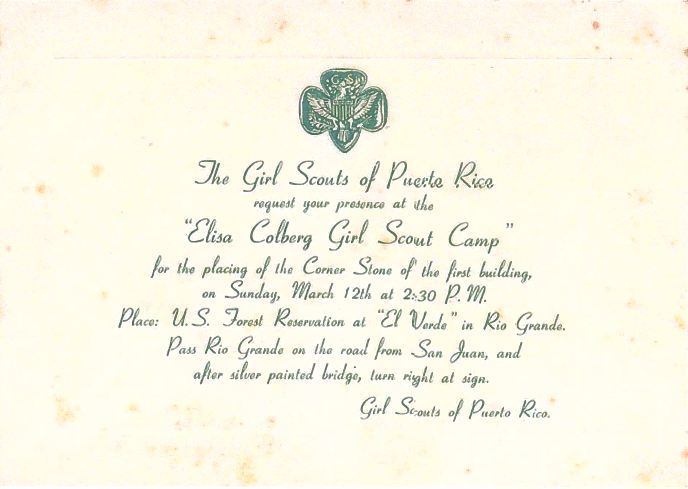 G S
The Girl Scouts of Puerto Rico
request your presence at the
"Elisa Colberg Girl Scout Camp"
for the placing of the Corner Stone of the first building,
on Sunday, March 12th at 2:30 P. M.
Place: U. S. Forest Reservation at "El Verde" in Rio Grande.
Pass Rio Grande on the road from San Juan, and
after silver painted bridge, turn right at sign.
Girl Scouts of Puerto Rico.